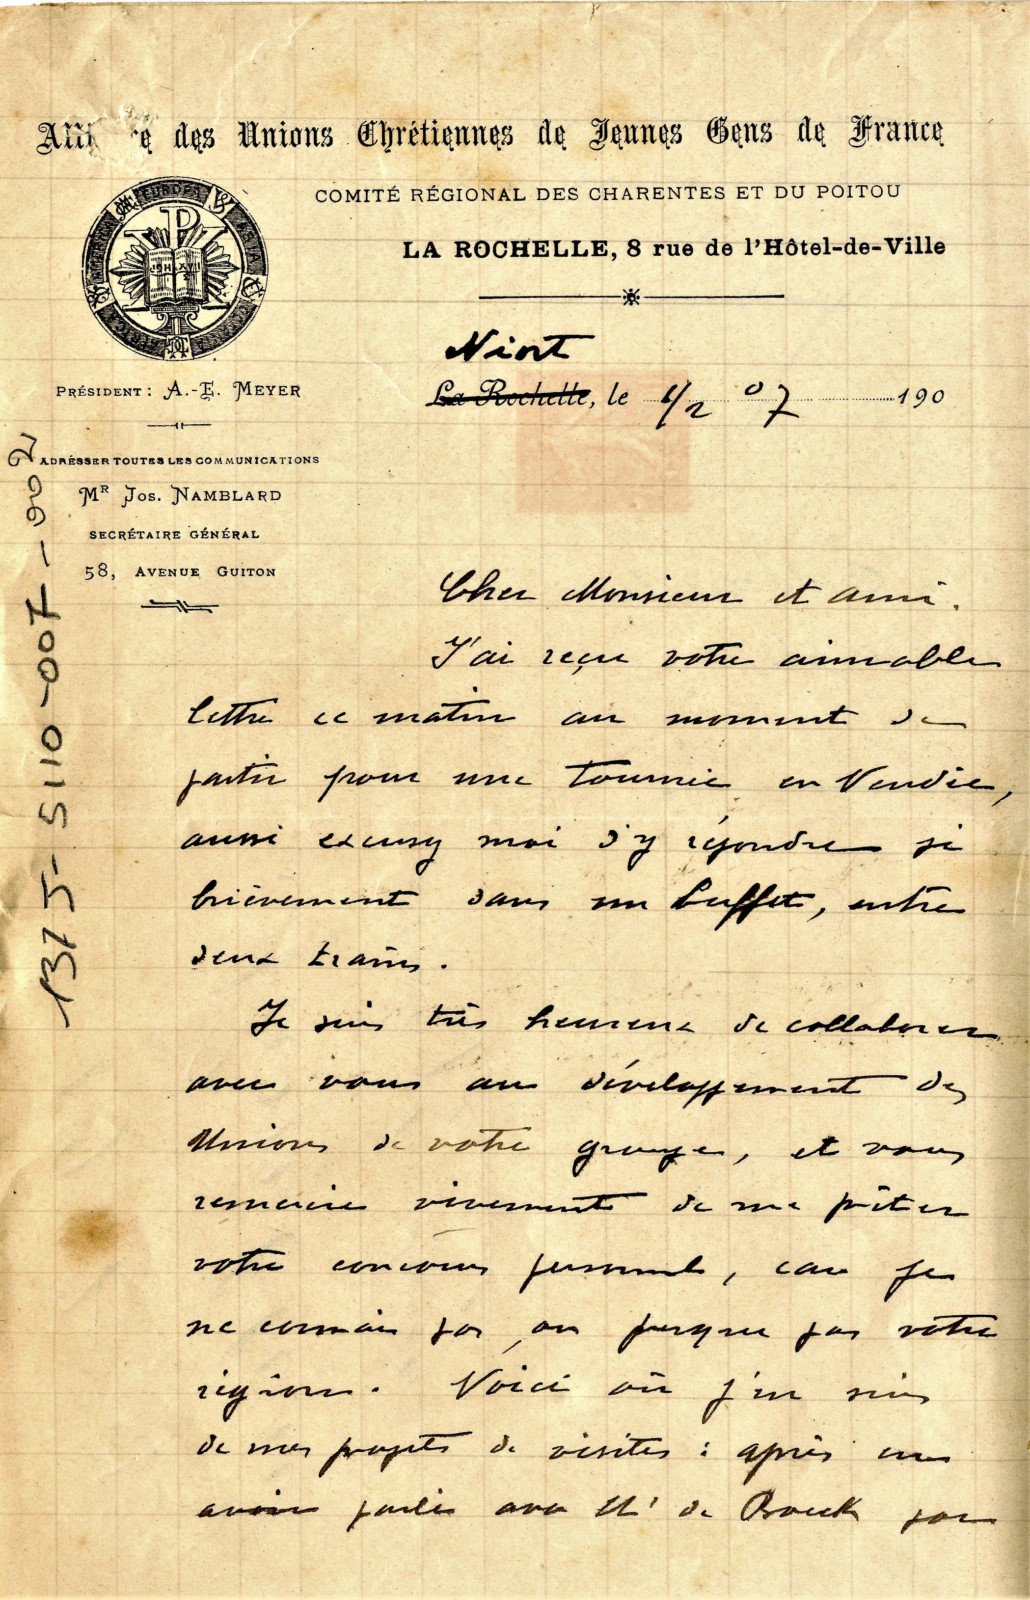 Alliance des Unions Chrétiennes de Jeunes Gens de France
COMITÉ RÉGIONAL DES CHARENTES ET DU POITOU
LA ROCHELLE, 8 rue de l'Hôtel-de-Ville
EUROPE
ASIA
AFRICA
AMERICA
JOH XVII
PRÉSIDENT : A.-E. MEYER
ADRESSER TOUTES LES COMMUNICATIONS
MR JOS. NAMBLARD
SECRÉTAIRE GÉNÉRAL
58, AVENUE GUITON
137 J - 5110 - 007 - 002
Niort
La Rochelle, le 1/2 07 190
Cher Monsieur et ami.
J'ai reçu votre aimable
lettre ce matin au moment de
partir pour une tournée en Vendée,
aussi excusez moi d'y répondre si
brièvement dans un buffet, entre
deux trains.
Je suis très heureux de collaborer
avec vous au développement des
Unions de votre groupe, et vous
remercie vivement de me prêter
votre concours personnel, car je
ne connais pas ou presque pas votre
région. Voici où j'en suis
de mes projets de visites : après en
avoir parlé avec Mr de Boeck par